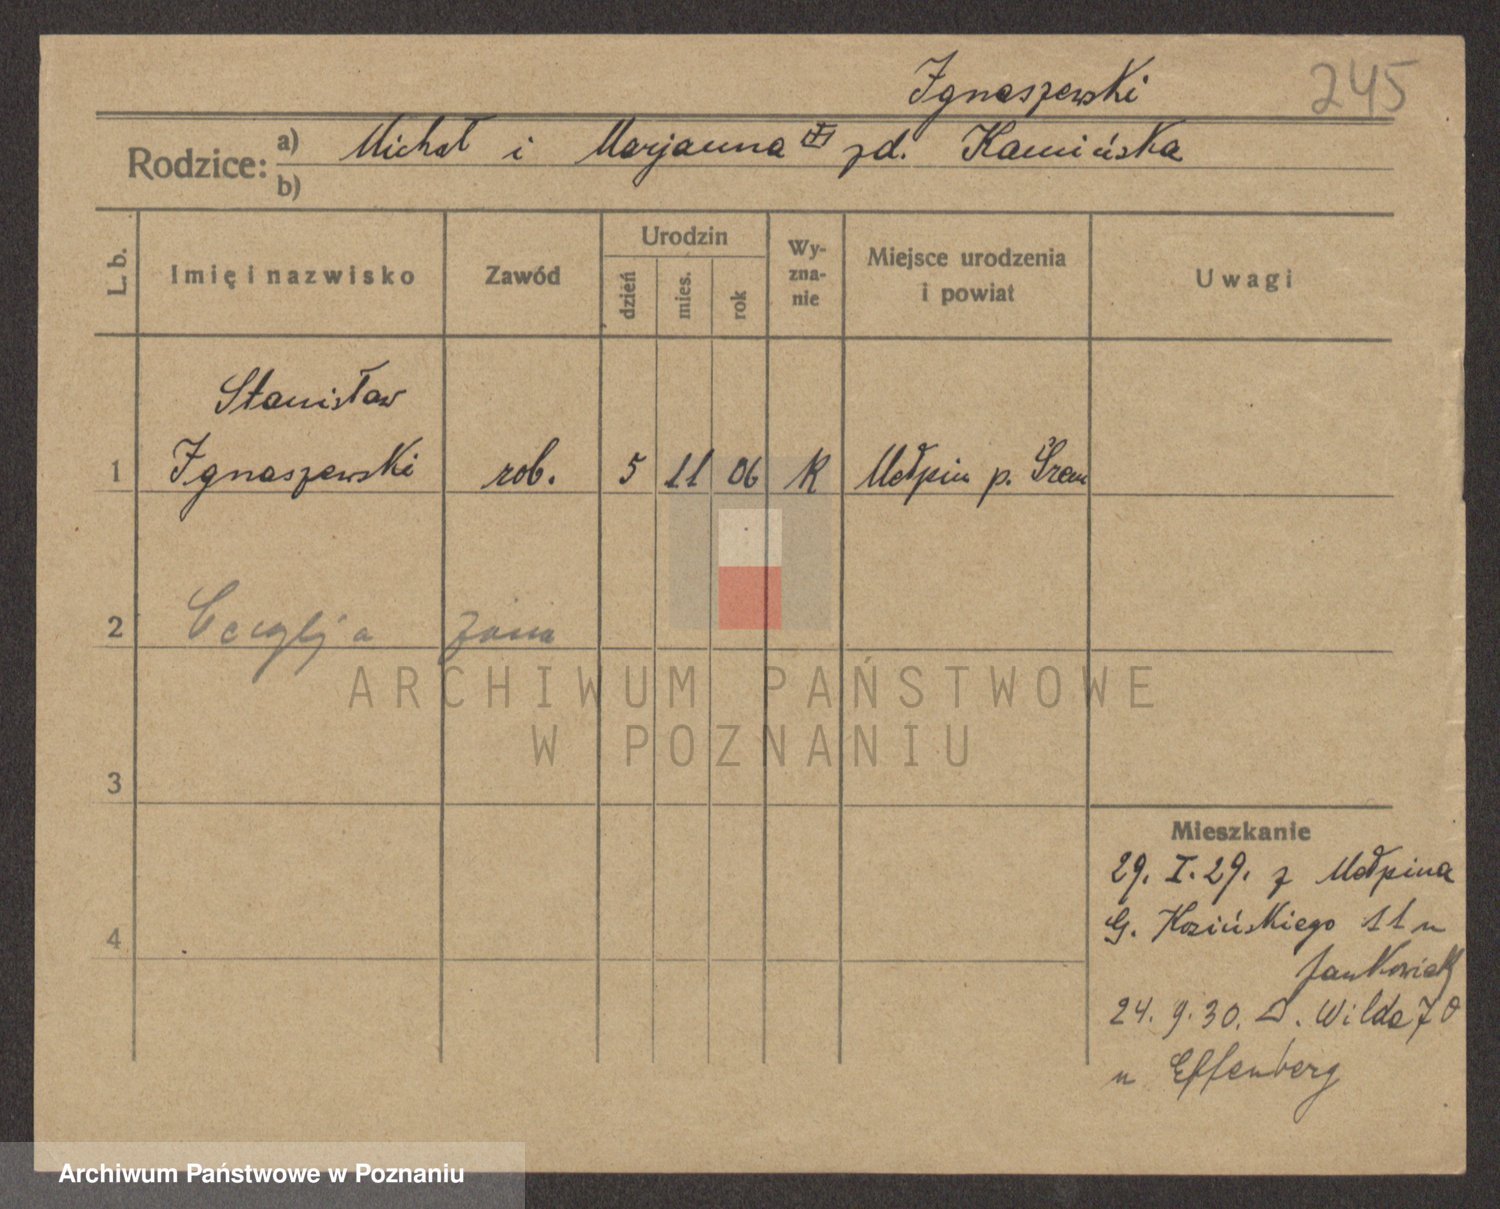 Ignaszewski 245
Rodzice: a) Michał i Marjanna zd. Kamińska
b)
L. b. Imię i nazwisko Zawód Urodzin dzień mies. rok Wy-zna-nie Miejsce urodzenia i powiat Uwagi
Stanisław
1 Ignaszewski rob. 5 11 06 K Mełpin p. Śrem
2 żona
ARCHIWUM PAŃSTWOWE
W POZNANIU
3
Mieszkanie
29. I. 29. z Mełpina
G. Kozińskiego 11 u
4
Jankowiak
24. 9. 30. D. Wilda 70
u Effenberg
Archiwum Państwowe w Poznaniu